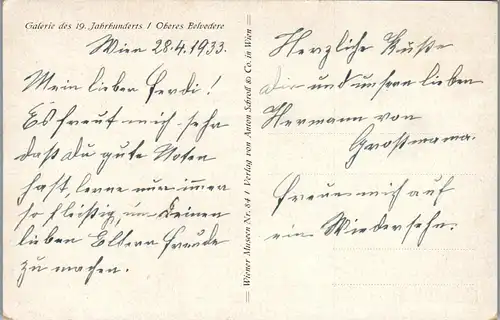 Galerie des 19. Jahrhunderts / Oberes Belvedere
Wien 28.4.1933.
Mein lieben Ferdi!
Es freut mich sehr
daß du gute Noten
hast lerne nur immer
so fleißig, um deinen
lieben Eltern Freude
zu machen.
Wiener Museen Nr. 84 / Verlag von Anton Schroll & Co. in Wien
Herzliche Kuße
dir und unsern lieben
Hermann von
Großmama.
freue mich auf
ein Wiedersehn.